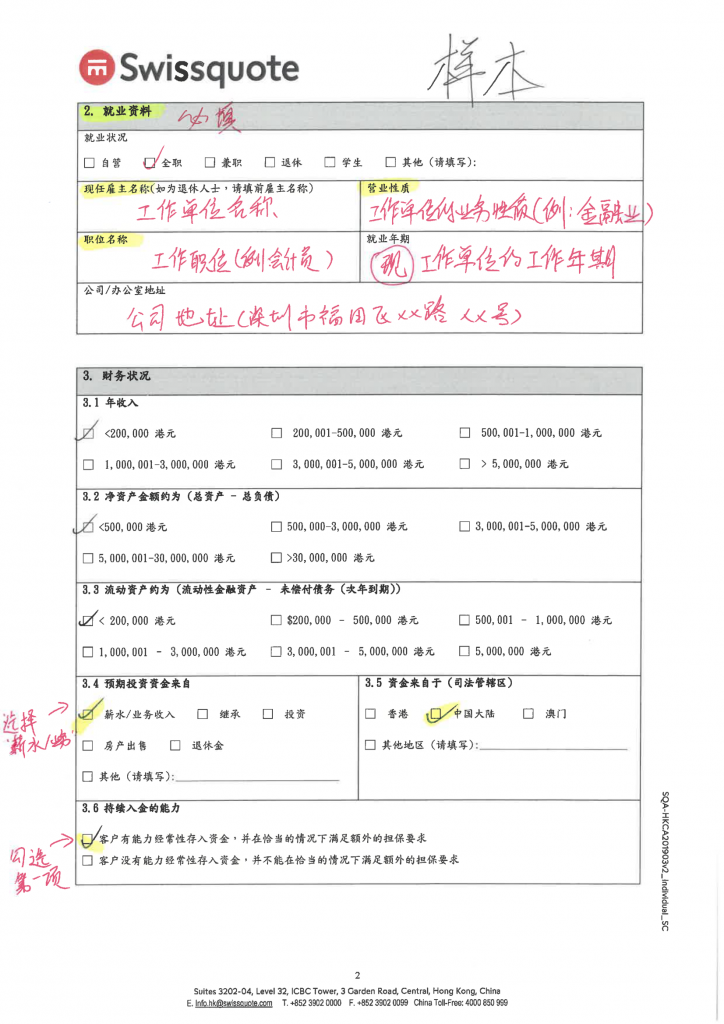 Swissquote
样本
2. 就业资料 必填
就业状况
自营 全职 兼职 退休 学生 其他 (请填写):
现任雇主名称(如为退休人士，请填前雇主名称) 营业性质
工作单位名称、 工作单位的业务性质(例:金融业)
职位名称 就业年期
工作职位(例会计员) 现 工作单位的工作年期
公司/办公室地址
公司地址(深圳市福田区××路 ××号)
3. 财务状况
3.1 年收入
<200,000 港元 200,001-500,000 港元 500,001-1,000,000 港元
1,000,001-3,000,000 港元 3,000,001-5,000,000 港元 > 5,000,000 港元
3.2 净资产金额约为 (总资产 - 总负债)
<500,000 港元 500,000-3,000,000 港元 3,000,001-5,000,000 港元
5,000,001-30,000,000 港元 >30,000,000 港元
3.3 流动资产约为 (流动性金融资产 - 未偿付债务 (次年到期))
< 200,000 港元 $200,000 - 500,000 港元 500,001 - 1,000,000 港元
1,000,001 - 3,000,000 港元 3,000,001 - 5,000,000 港元 5,000,000 港元
3.4 预期投资资金来自 3.5 资金来自于 (司法管辖区)
选择 薪水/业务收入 继承 投资 香港 中国大陆 澳门
"薪水/业务" 房产出售 退休金 其他地区 (请填写):
其他 (请填写):
3.6 持续入金的能力
客户有能力经常性存入资金，并在恰当的情况下满足额外的担保要求
勾选 客户没有能力经常性存入资金，并不能在恰当的情况下满足额外的担保要求
第一项
SQA-HKCA201903v2_Individual_SC
2
Suites 3202-04, Level 32, ICBC Tower, 3 Garden Road, Central, Hong Kong, China
E. info.hk@swissquote.com T. +852 3902 0000 F. +852 3902 0099 China Toll-Free: 4000 850 999